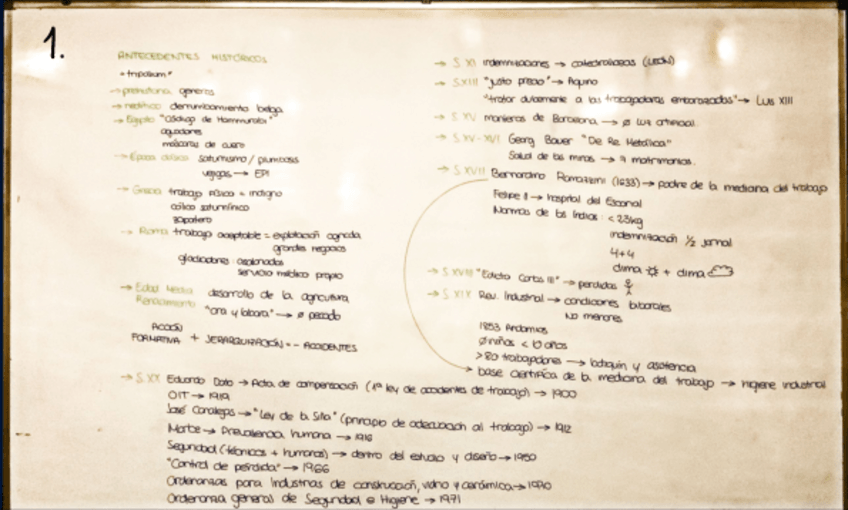 1.
ANTECEDENTES HISTÓRICOS
"tripalium"
→ prehistoria generos
→ neolítico derrumbamiento belga
→ Egipto "Código de Hammurabi"
aguadores
máscaras de cuero
→ Época clásica saturnismo / plumbosis
vejigas → EPI
→ Grecia trabajo físico = indigno
cólico saturnínico
zapatero
→ Roma trabajo aceptable = explotación agrícola
grandes negocios
gladiadores: asalonados
servicio médico propio
→ Edad Media desarrollo de la agricultura
Renacimiento "ora y labora" → ø pecado
ACCIÓN
FORMATIVA + JERARQUIZACIÓN = - ACCIDENTES
→ S. XI indemnizaciones → catedraliagas (León)
→ S. XIII "justo precio" → Aquino
"tratar dulcemente a las trabajadoras embarazadas" → Luis XIII
→ S. XV monteros de Barcelona → ø luz artificial
→ S. XV-XVI Georg Bauer "De Re Metálica"
Salud de las minas → 7 matrimonios.
→ S. XVII Bernardino Ramazzini (1633) → padre de la medicina del trabajo
Felipe II → hospital del Escorial
Normas de las Indias: < 23kg
indemnización 1/2 jornal
4+4
clima ☼ + clima ☁
→ S. XVIII "Edicto Carlos III" → perdidas
→ S. XIX Rev. Industrial → condiciones laborales
No menores
1853 Andamios
ø niños < 10 años
> 80 trabajadores → botiquín y asistencia
base científica de la medicina del trabajo → higiene industrial
→ S. XX Eduardo Dato → Acta de compensación (1ª ley de accidentes de trabajo) → 1900
OIT → 1919
José Canalejas → "Ley de la Silla" (principio de adecuación al trabajo) → 1912
Marbe → Prevalencia humana → 1916
Seguridad (técnicos + humanos) → dentro del estudio y diseño → 1950
"Control de pérdida" → 1966
Ordenanzas para Industrias de construcción, vidrio y cerámica → 1970
Ordenanza general de Seguridad e Higiene → 1971